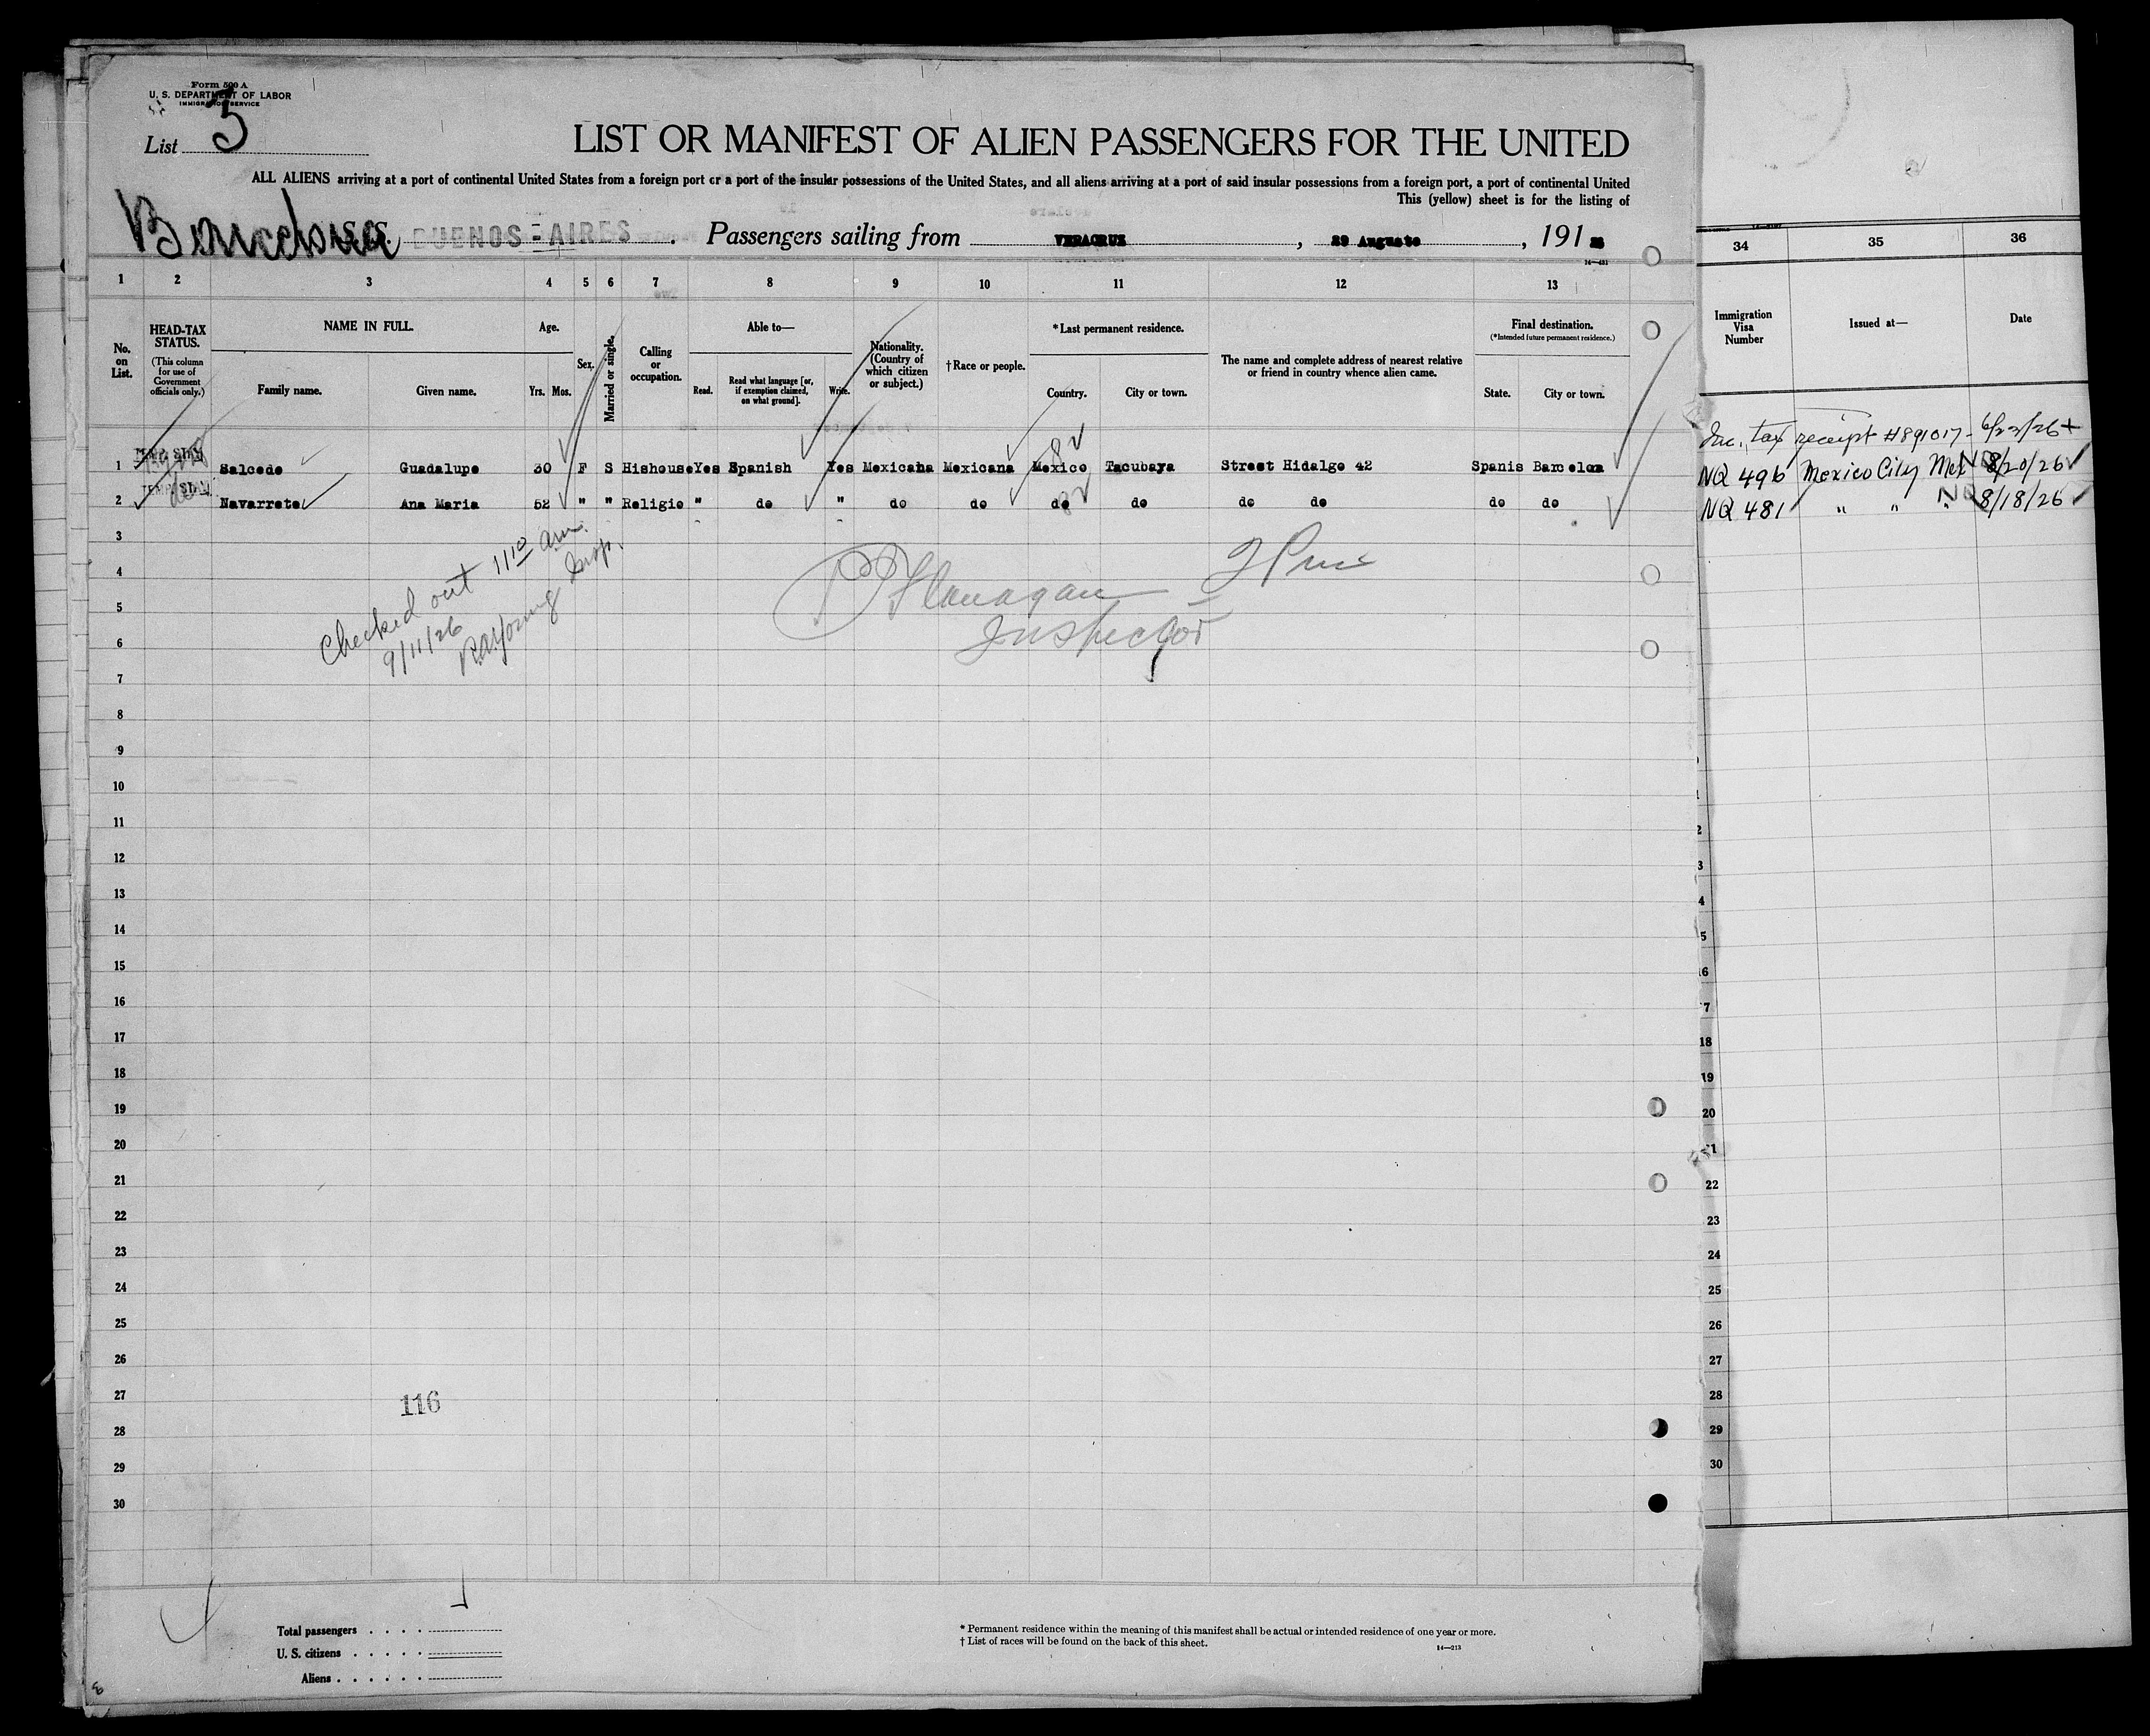 Form 500 A
U. S. DEPARTMENT OF LABOR
IMMIGRATION SERVICE
List 3
LIST OR MANIFEST OF ALIEN PASSENGERS FOR THE UNITED
ALL ALIENS arriving at a port of continental United States from a foreign port or a port of the insular possessions of the United States, and all aliens arriving at a port of said insular possessions from a foreign port, a port of continental United
This (yellow) sheet is for the listing of
S. S. BUENOS-AIRES. Passengers sailing from VERACRUZ, 29 Augusto, 191
14—431
1 2 3 4 5 6 7 8 9 10 11 12 13
34 35 36
No. on List.
HEAD-TAX STATUS.
(This column for use of Government officials only.)
NAME IN FULL.
Family name. Given name.
Age.
Yrs. Mos.
Sex.
Married or single.
Calling or occupation.
Able to—
Read. Read what language [or, if exemption claimed, on what ground]. Write.
Nationality. (Country of which citizen or subject.)
†Race or people.
*Last permanent residence.
Country. City or town.
The name and complete address of nearest relative or friend in country whence alien came.
Final destination.
(*Intended future permanent residence.)
State. City or town.
Immigration Visa Number
Issued at—
Date
tax receipt #891017-6/22/26
1 Salcedo Guadalupe 30 F S Hishouse Yes Spanish Yes Mexicana Mexicana Mexico Tacubaya Street Hidalgo 42 Spanis Barcelona NQ 496 Mexico City Mex 8/20/26
2 Navarrete Ana Maria 52 " " Religio " do " do do do do do do do do NQ 481 " " " 8/18/26
3
4
5
6
7
8
9
10
11
12
13
14
15
16
17
18
19
20
21
22
23
24
25
26
27
28
29
30
Checked out 11 10 am.
9/11/26
R.A. Young Insp.
Flanagan
Inspector
116
18
19
20
22
23
24
25
26
27
28
29
30
Total passengers
U. S. citizens
Aliens
* Permanent residence within the meaning of this manifest shall be actual or intended residence of one year or more.
† List of races will be found on the back of this sheet.
14—213